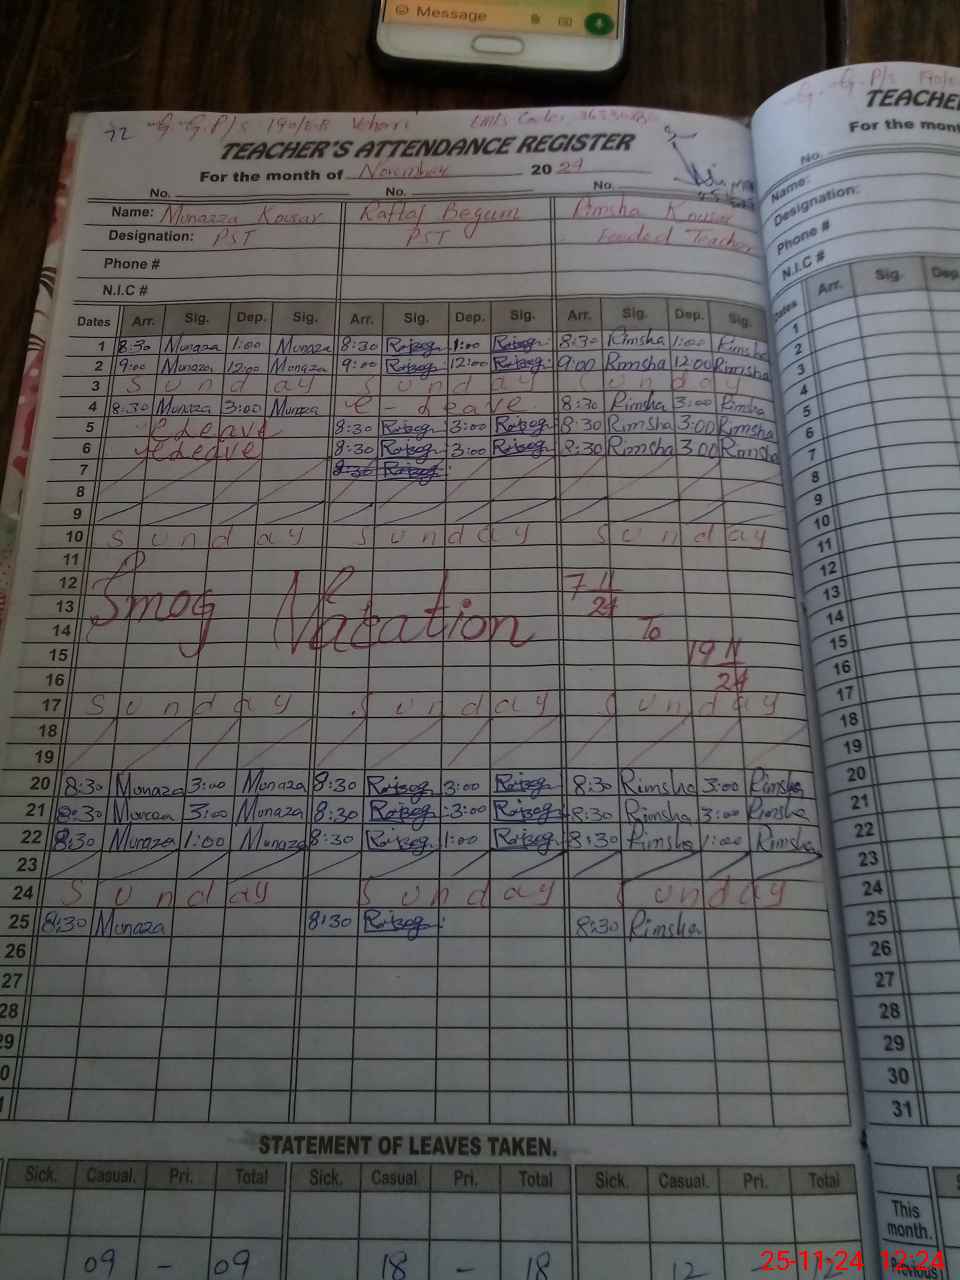 Message
72 G.G.P/s 190/E.B Vehari
G.G.P/s 190/
TEACHER'S ATTENDANCE REGISTER
TEACHE
For the month of November 2024
For the mont
No. No. No.
No.
Name: Munazza Kousar Rimsha Kousar
Name:
Designation: PST PST Feeded Teacher
Designation:
Phone #
Phone #
N.I.C #
N.I.C #
Dates Arr. Sig. Dep. Sig. Arr. Sig. Dep. Sig. Arr. Sig. Dep. Sig.
Dates Arr. Sig. Dep.
1 8:30 Munaza 1:00 Munaza 8:30 1:00 8:30 Rimsha 1:00 Rimsha
2 9:00 Munaza 12:00 Munaza 9:00 12:00 9:00 Rimsha 12:00 Rimsha
3 Sunday Sunday Sunday
4 8:30 Munaza 3:00 Munaza Leave 8:30 Rimsha 3:00 Rimsha
5 Leave 8:30 3:00 8:30 Rimsha 3:00 Rimsha
6 Leave 8:30 3:00 8:30 Rimsha 3:00 Rimsha
7 8:30
8
9
10 Sunday Sunday Sunday
11
12 Smog Vacation 7 11/24
13
14 To
15 19 11/24
16
17 Sunday Sunday Sunday
18
19
20 8:30 Munaza 3:00 Munaza 8:30 3:00 8:30 Rimsha 3:00 Rimsha
21 8:30 Munaza 3:00 Munaza 8:30 3:00 8:30 Rimsha 3:00 Rimsha
22 8:30 Munaza 1:00 Munaza 8:30 1:00 8:30 Rimsha 1:00 Rimsha
23
24 Sunday Sunday Sunday
25 8:30 Munaza 8:30 8:30 Rimsha
26
27
28
29
0
1
1
2
3
4
5
6
7
8
9
10
11
12
13
14
15
16
17
18
19
20
21
22
23
24
25
26
27
28
29
30
31
STATEMENT OF LEAVES TAKEN.
Sick. Casual. Pri. Total Sick. Casual. Pri. Total Sick. Casual. Pri. Total
This
month.
09 - 09 18 - 18 12 -
Previous
25-11-24 12:24